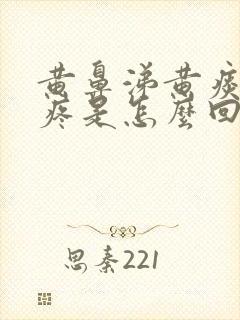 黄鼻涕黄痰
疼是怎麼回
思秦221